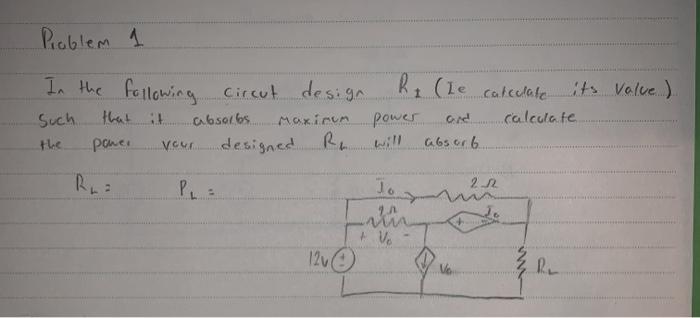 Problem 1
In the following circut design R1 (Ie calculate its value)
Such that it absorbs maximum power and calculate
the power your designed RL will absorb
RL = PL =
Io 2Ω
+ Io
+ Vo -
12v
Vo RL